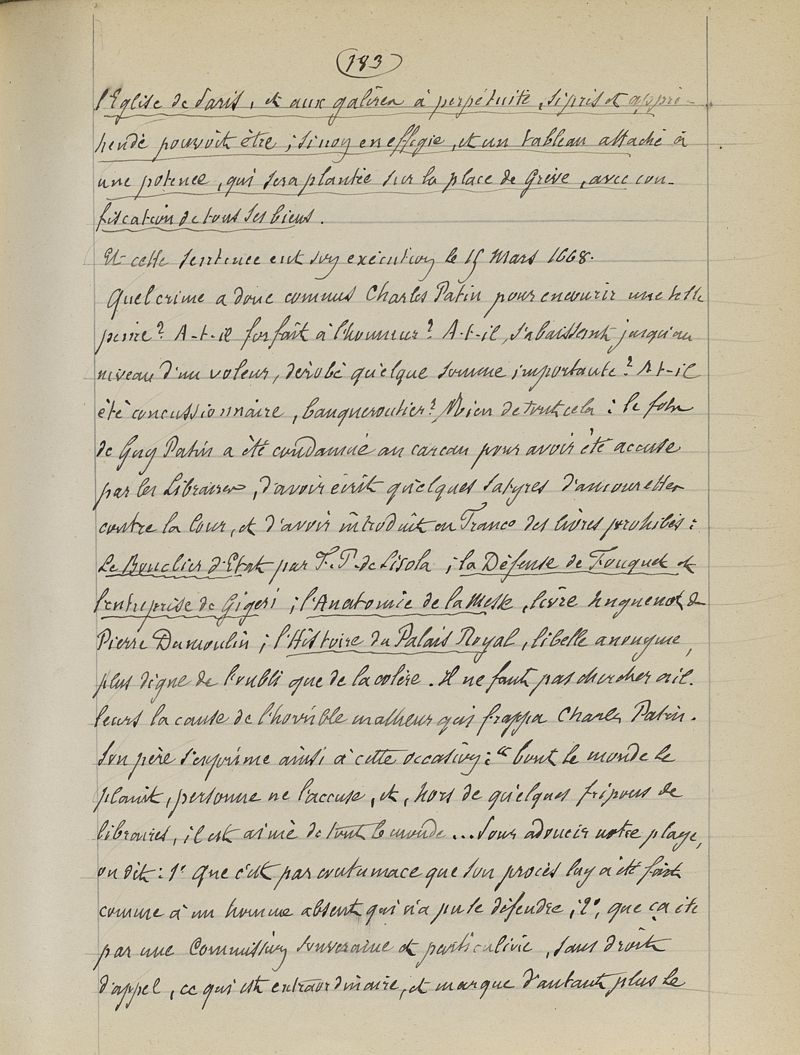 183
l'Eglise de Paris, et aux galères à perpétuité, si pris et appré-
hendé pouvoit être; sinoy en effigie, et un tableau attaché à
une potence, qui sera plantée sur la place de Grève, avec con-
fiscation de tous ses biens.
Et cette sentence eut soy exécutioy le 15 Mars 1668.
Quel crime a donc commis Charles Patin pour encourir une telle
peine? A-t-il forfait à l'honneur? A-t-il, s'abaissant jusqu'au
niveau d'un voleur, dérobé quelque somme importante? A-t-il
été concussionnaire, banqueroutier? Rien de tout cela: le fils
de Guy Patin a été condamné au carcan pour avoir été accusé
par les Libraires, d'avoir écrit quelques satyres d'amourettes
contre la Cour, et d'avoir introduit en France des livres prohibés:
Le Bouclier d'Etat par F. P. de Lisola; la Défense de Fouquet et
l'entreprise de Gigeri; l'Anatomie de la Messe, livre huguenot de
Pierre Dumoulin; l'Histoire du Palais Royal, libelle anonyme,
plus digne de l'oubli que de la colère. Il ne faut pas chercher ail-
leurs la cause de l'horrible malheur qui frappa Charles Patin.
Son père s'exprime ainsi à cette occasioy: "tout le monde le
plaint, personne ne l'accuse, et, hors de quelques fripons de
libraires, il est aimé de tout le monde... Pour adoucir notre playe,
on dit: 1° que c'est par contumace que son procès luy a été fait
comme à un homme absent qui n'a pu se défendre; 2°, que ça été
par une Commissioy souveraine et particulière, sans droit
d'appel, ce qui est extraordinaire, et marque d'autant plus le